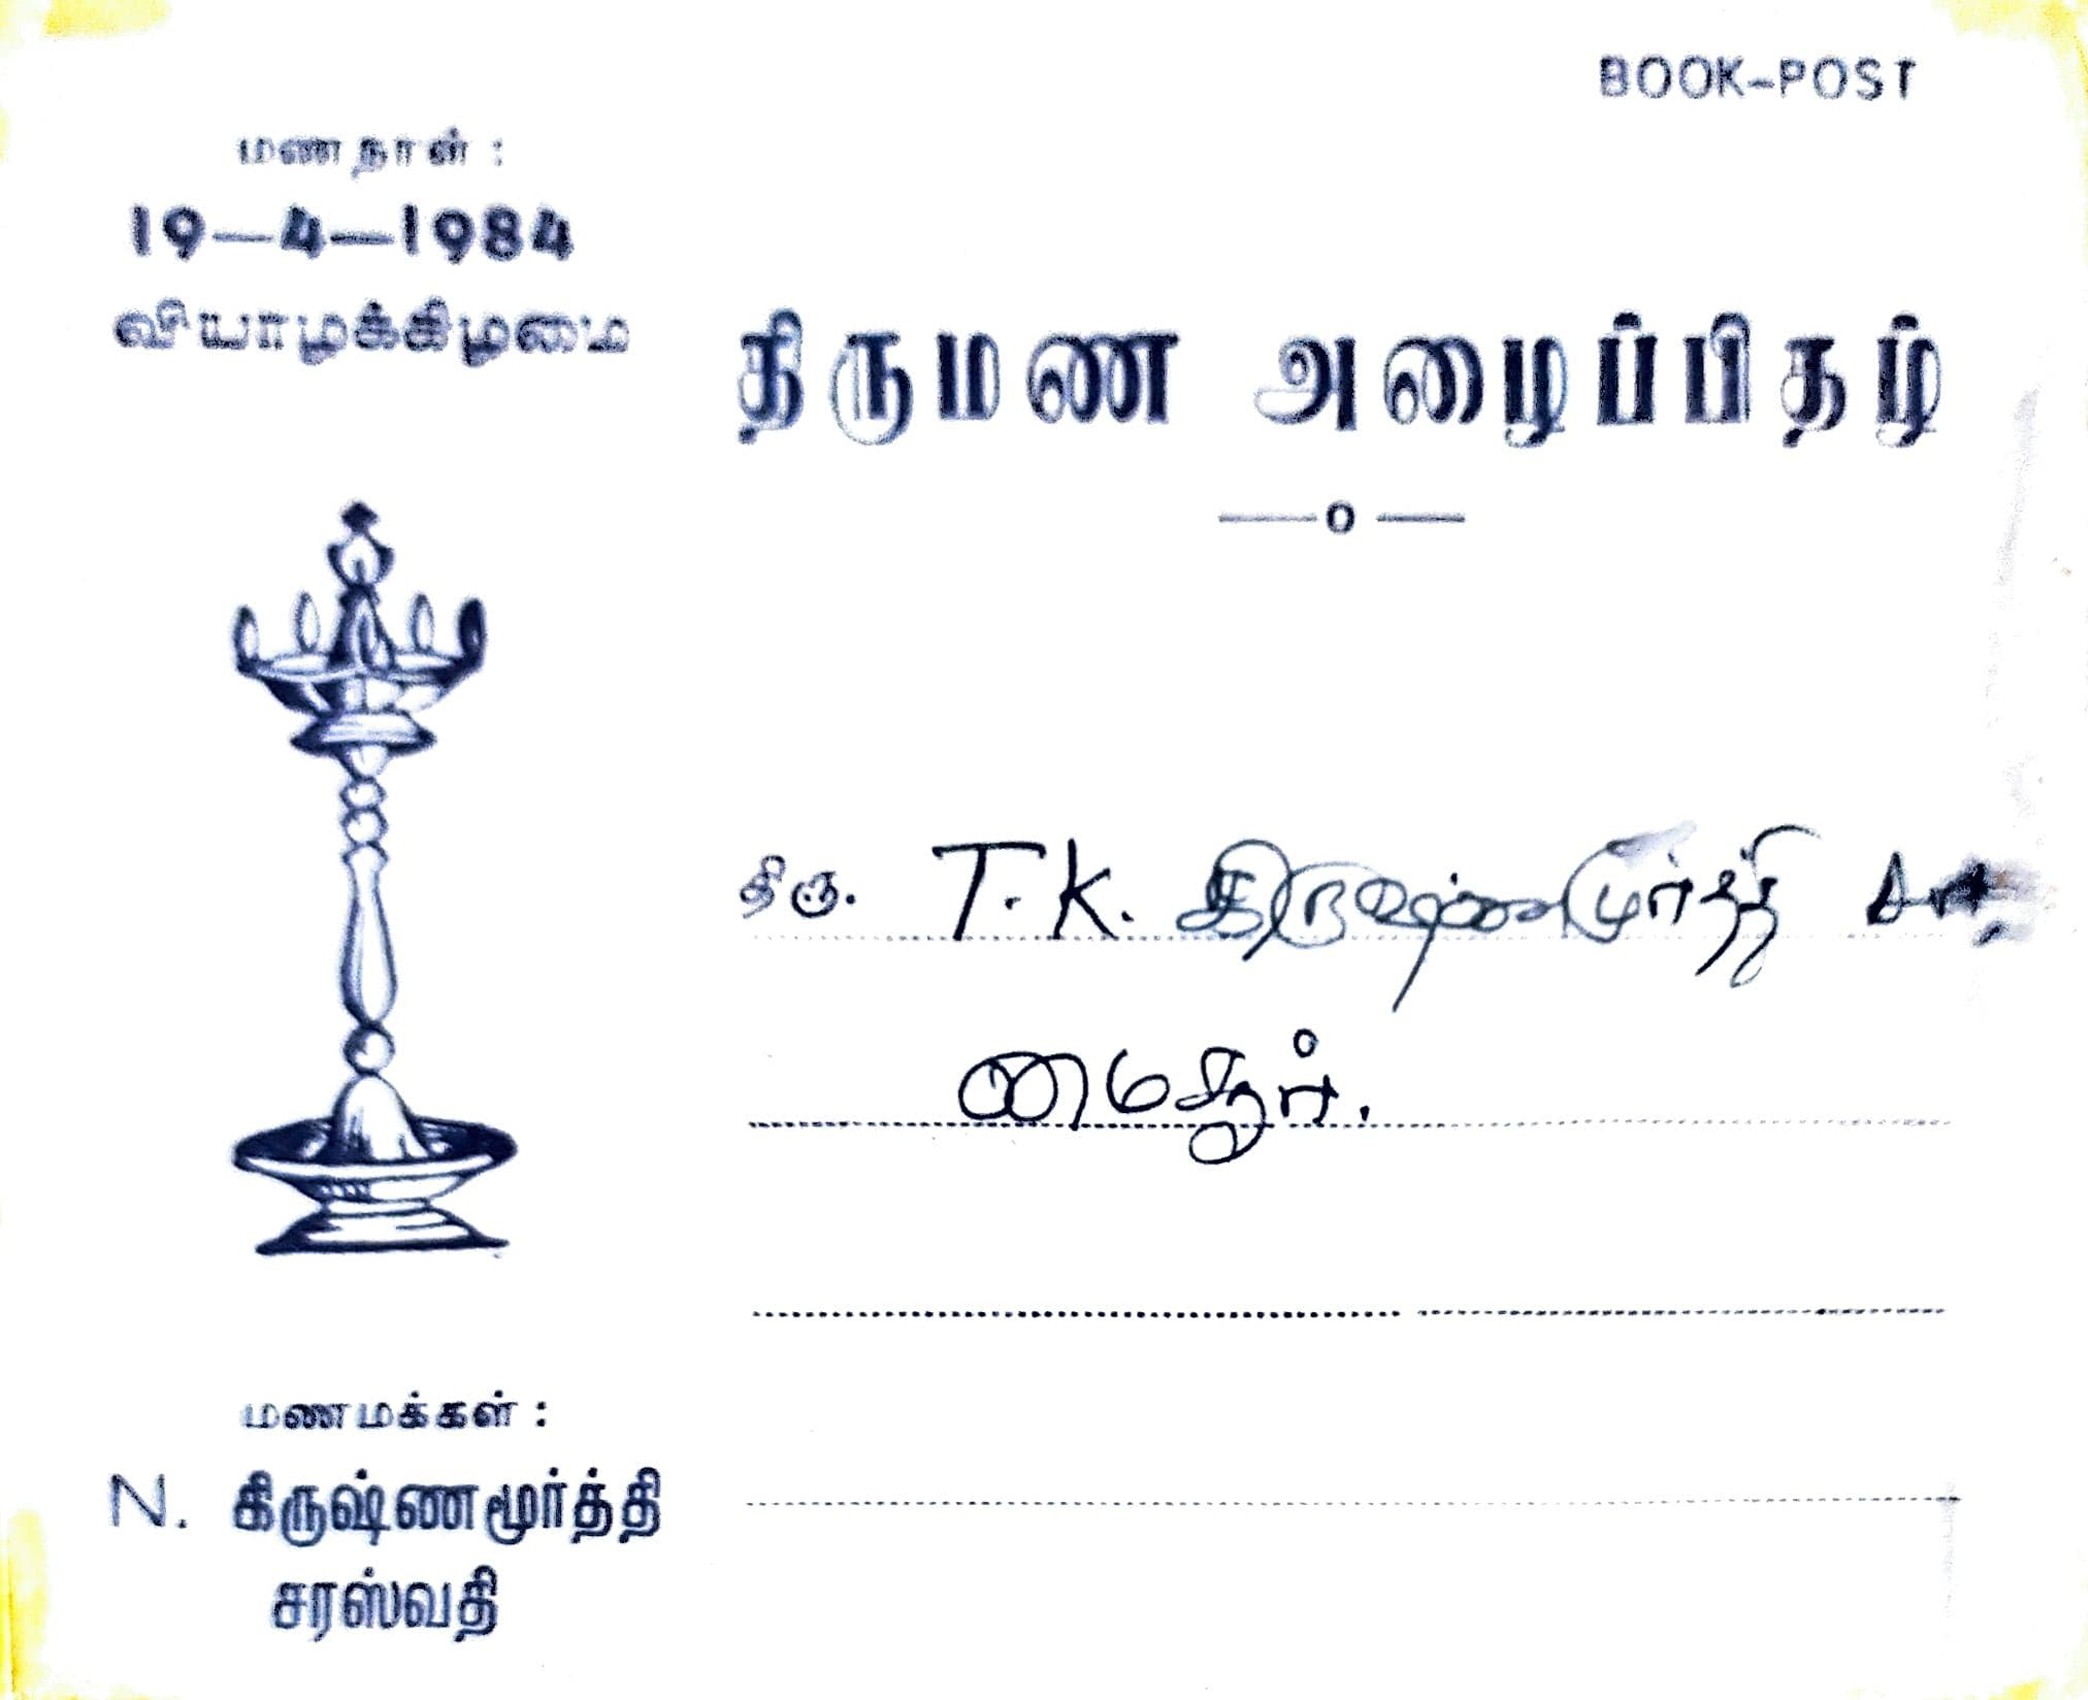 BOOK-POST
மணநாள் :
19-4-1984
வியாழக்கிழமை
திருமண அழைப்பிதழ்
திரு. T.K. கிருஷ்ணமூர்த்தி
மைசூர்.
மணமக்கள் :
N. கிருஷ்ணமூர்த்தி
சரஸ்வதி